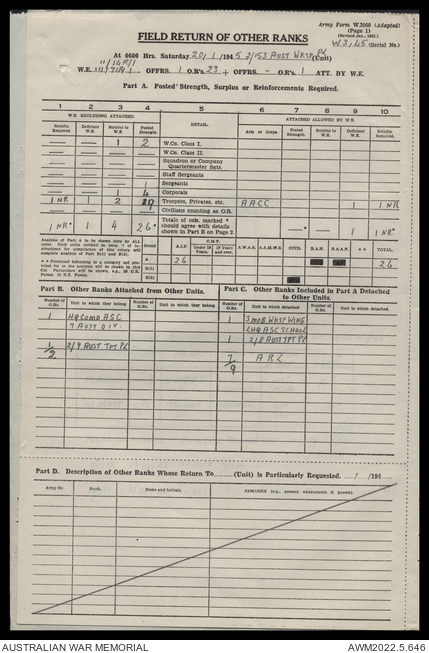 Army Form W.3009 (Adapted)
(Page 1)
(Revised Jan., 1943.)
FIELD RETURN OF OTHER RANKS
W3/45 (Serial No.)
At 0600 Hrs. Saturday 20/1/1945 2/153 AUST WKSP PL (Unit)
W.E. OFFRS. 1 O.R's. 23 + OFFRS. - O.R's. 1 ATT. BY W.E.
Part A. Posted Strength, Surplus or Reinforcements Required.
1 2 3 4 5 6 7 8 9 10
W.E. EXCLUDING ATTACHED. DETAIL. ATTACHED ALLOWED BY W.E.
Reinfts. Required. Deficient W.E. Surplus to W.E. Posted Strength Arts or Corps. Posted Strength Surplus to W.E. Deficient W.E. Reinfts. Required.
— — 1 2 W.Os. Class I.
— — — — W.Os. Class II.
— — — — Squadron or Company Quartermaster Sgts.
— — — — Staff Sergeants
— — — 1 Sergeants
— — 1 4 Corporals
1 NR 1 2 19 Troopers, Privates, etc. AACC 1 1 NR
— — — — Civilians counting as O.R.
1 NR* 1 4 26* Totals of cols. marked * should agree with details shown in Part E on Page 2. —* — 1 1 NR*
Analysis of Part A to be shown here by ALL Units.
Detail A.I.F. C.M.F. Under 19 Years. 19 Years and over. A.W.A.S. A.A.M.W.S. CIVIL R.A.N. R.A.A.F. ** TOTAL.
A 26 26
B(1)
B(2)
Part B. Other Ranks Attached from Other Units.
Part C. Other Ranks Included in Part A Detached to Other Units.
Number of O.Rs. Unit to which they belong Number of O.Rs. Unit to which they belong Number of O.Rs. Unit to which detached. Number of O.Rs. Unit to which detached.
1 HQ COMD ASC 1 3 MOB WKSP WING
7 AUST DIV. LHQ ASC SCHOOL
1 2/8 AUST TPT PL
1 2/9 AUST TPT PL.
2
7 ARL
9
Part D. Description of Other Ranks Whose Return To (Unit) is Particularly Requested. / /194
Army No. Rank. Name and Initials. REMARKS (e.g., present whereabouts if known).
AUSTRALIAN WAR MEMORIAL AWM2022.5.646